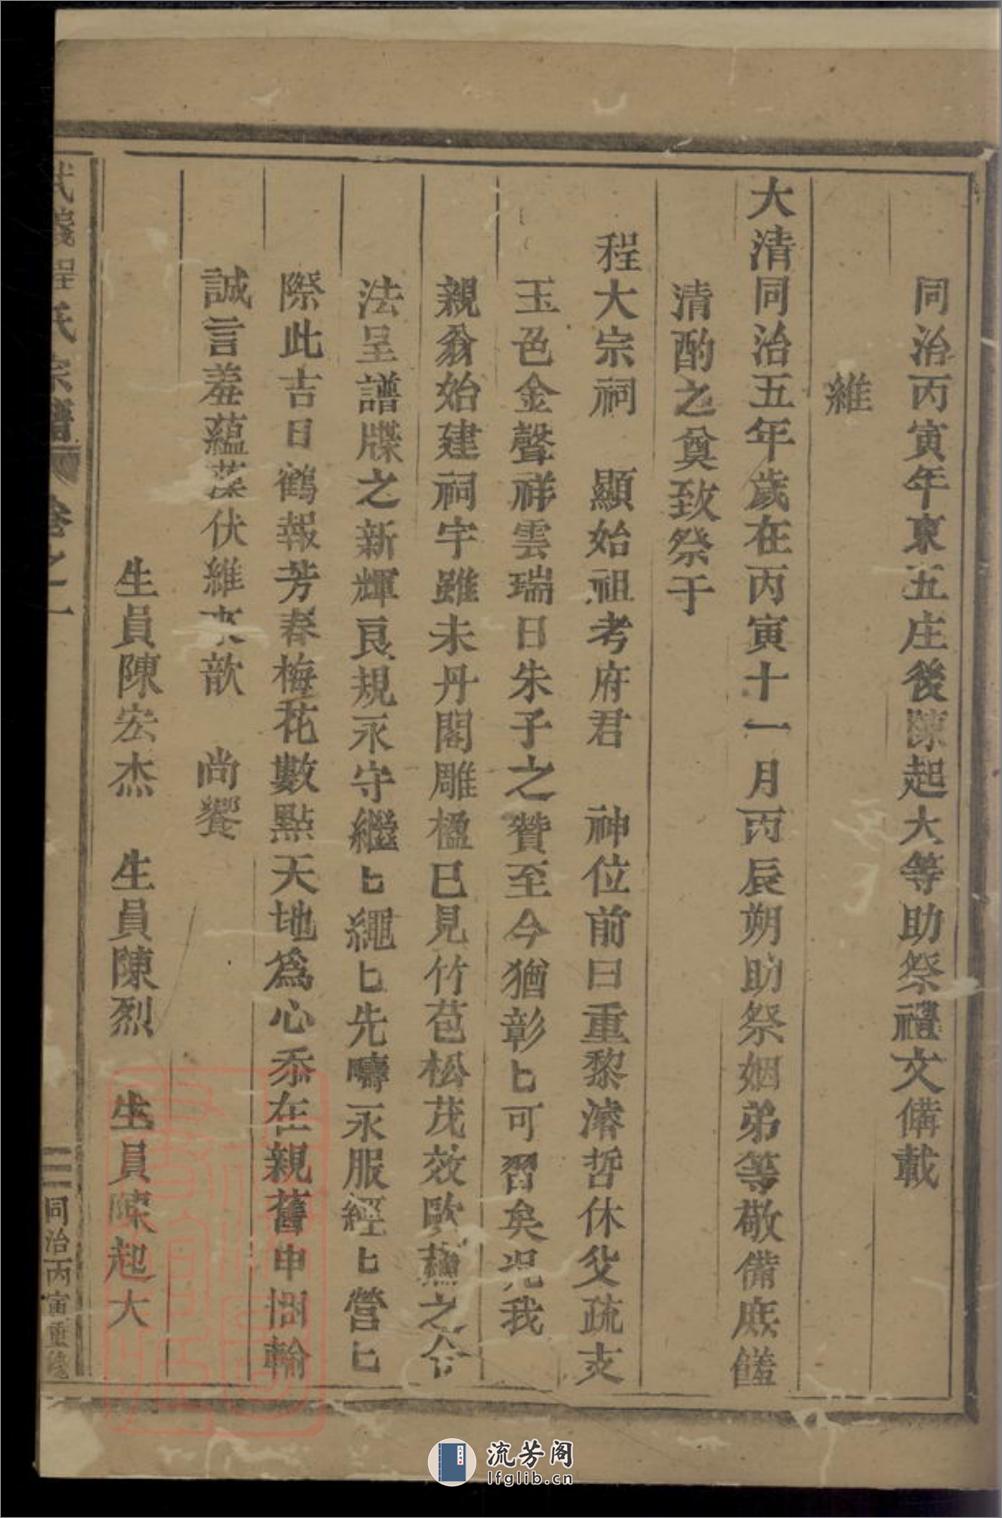 同治丙寅年東五庄後陳起大等助祭禮文俻載
維
大清同治五年歲在丙寅十一月丙辰朔助祭姻弟等敬備庶饈
清酌之奠致祭于
程大宗祠　顯始祖考府君　神位前曰重黎濬哲休父疏支
玉色金聲祥雲瑞日朱子之贊至今猶彰〻可習矣况我
親翁始建祠宇雖未丹閣雕楹已見竹苞松茂效歐蘇之令
法呈譜牒之新輝良規永守繼〻繩〻先疇永服經〻營〻
際此吉日鶴報芳春梅花數點天地為心忝在親舊申悃輸
誠言羞蘊藻伏維來歆　尚饗
生員陳宏杰　生員陳烈　生員陳起大
武義程氏宗譜　卷之一　同治丙寅重鐫
流芳阁
lfglib.cn